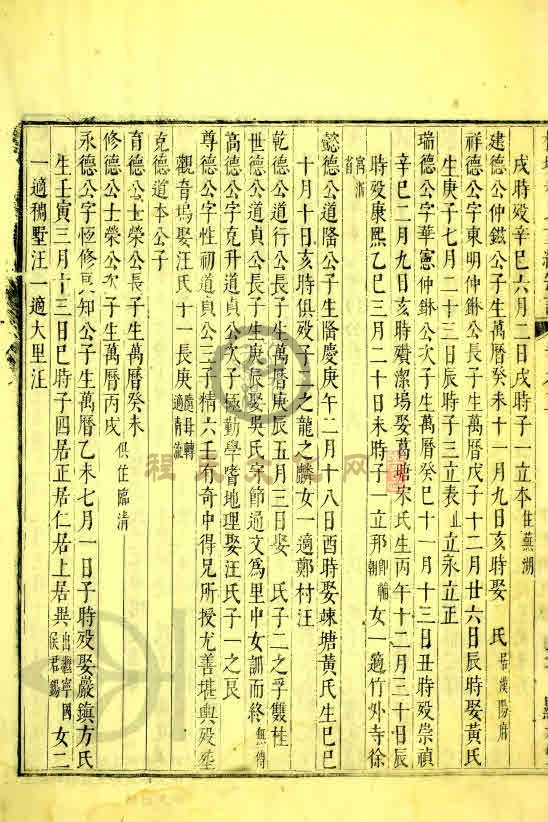 戌時殁辛巳六月二日戌時子一立本住蕪湖
建德公仲鎡公子生萬曆癸未十一月九日亥時娶　氏居漢陽府
祥德公字東明仲鉌公長子生萬曆戊子十二月廿六日辰時娶黃氏
生庚子七月二十三日辰時子三立表止立永立正
瑞德公字華憲仲鉌公次子生萬曆癸巳十一月十三日丑時殁崇禎
辛巳二月九日亥時殯潔塲娶萬塘宋氏生丙午十二月三十日辰
時殁康熙乙巳三月二十日未時子一立邦卽輔朝女一適竹外寺徐
寓浙省
懿德公道隆公子生隆慶庚午二月十八日酉時娶竦塘黃氏生己巳
十月十日亥時俱殁子二之龍之麟女一適鄭村汪
乾德公道行公長子生萬曆庚辰五月三日娶　氏子二之孚雙桂
世德公道貞公長子生庚辰娶吳氏守節通文為里中女訓而終無傳
高德公字克升道貞公次子極勤學嗜地理娶汪氏子一之良
尊德公字性初道貞公三子精六壬有奇中得兄所授尤善堪輿殁塟
觀音塢娶汪氏十一長庚隨母轉適清流
克德道本公子
育德公士榮公長子生萬曆癸未
修德公士榮公次子生萬曆丙戌俱住臨清
永德公字恆修良知公子生萬曆乙未七月一日子時殁娶巖鎮方氏
生壬寅三月十三日巳時子四居正居仁居上居異出繼寧國侯君錫女二
一適稠墅汪一適大里汪
程氏文化网